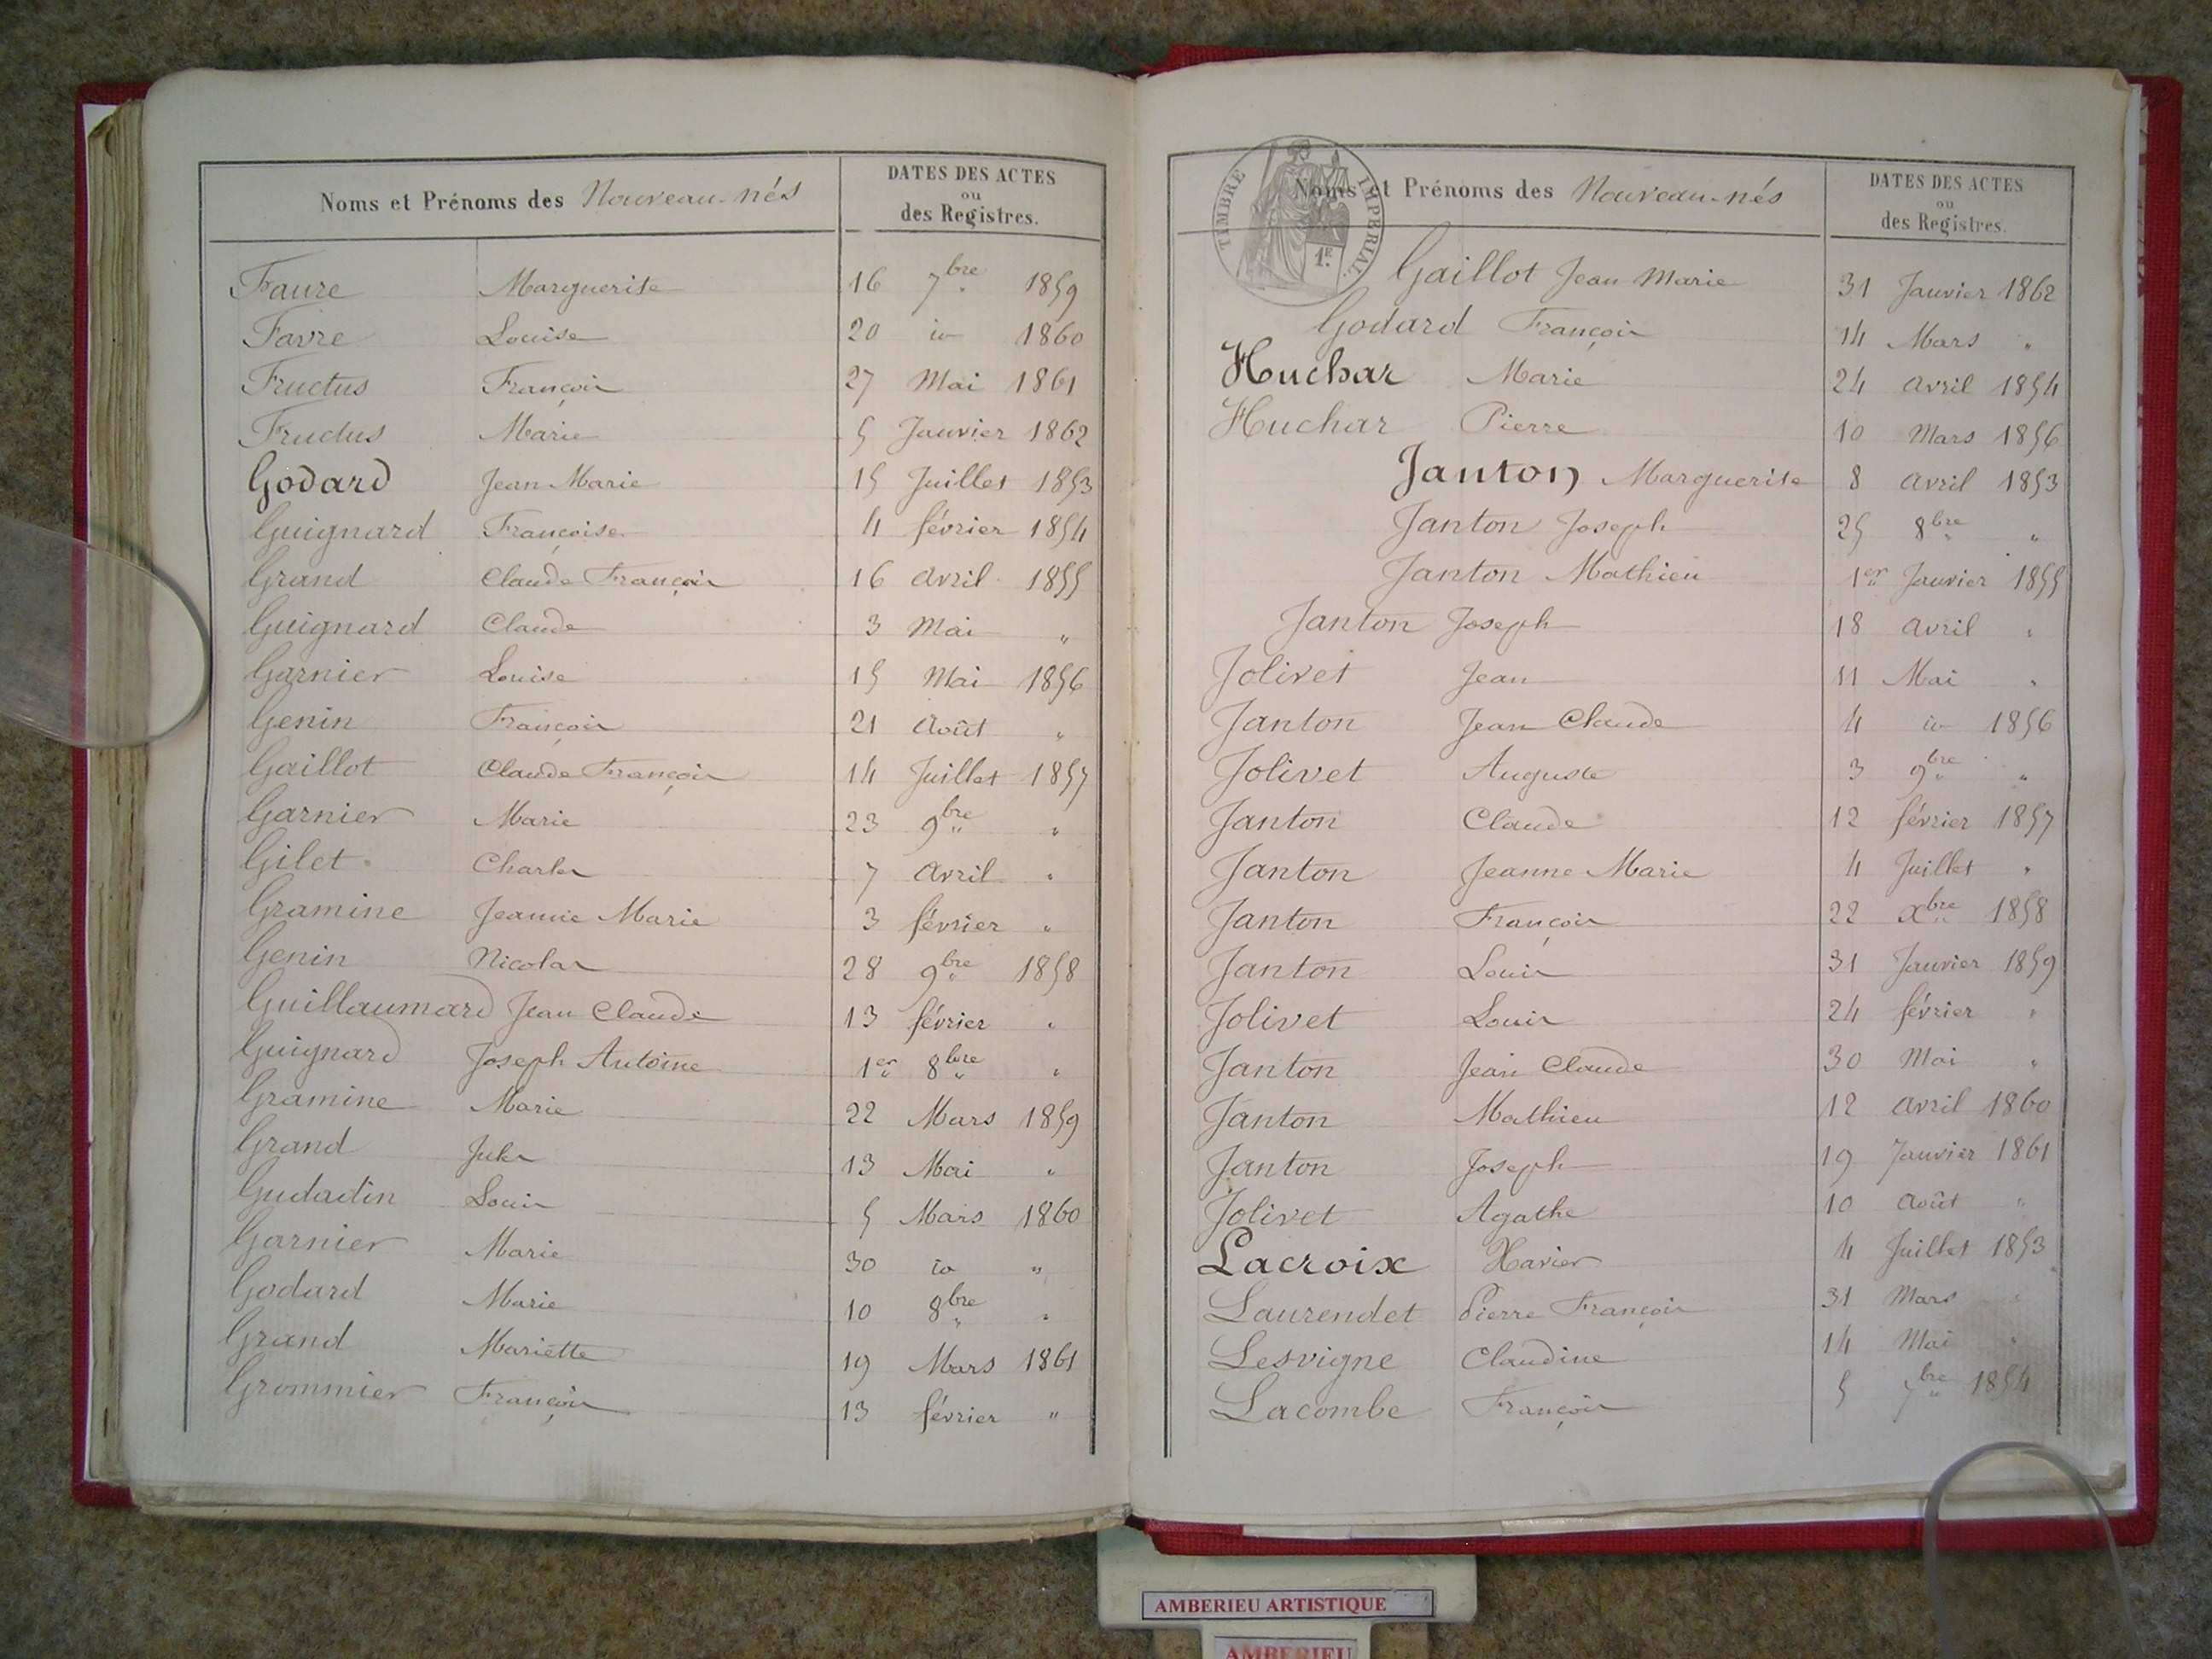 Noms et Prénoms des Nouveau-nés
DATES DES ACTES
ou
des Registres.
Faure Marguerite 16 7bre 1859
Favre Louise 20 id 1860
Fructus François 27 Mai 1861
Fructus Marie 5 Janvier 1862
Godard Jean Marie 15 Juillet 1853
Guignard Françoise 4 février 1854
Grand Claude François 16 avril 1855
Guignard Claude 3 Mai "
Garnier Louise 15 Mai 1856
Genin François 21 Août "
Gaillot Claude François 14 Juillet 1857
Garnier Marie 23 9bre "
Gilet Charles 7 Avril "
Gramine Jeanne Marie 3 février "
Genin Nicolas 28 9bre 1858
Guillaumard Jean Claude 13 février "
Guignard Joseph Antoine 1er 8bre "
Gramine Marie 22 Mars 1859
Grand Jules 13 Mai "
Gudadin Louis 5 Mars 1860
Garnier Marie 30 id "
Godard Marie 10 8bre "
Grand Mariette 19 Mars 1861
Grommier François 13 février "
TIMBRE IMPERIAL.
1F.
Noms et Prénoms des Nouveau-nés
DATES DES ACTES
ou
des Registres.
Gaillot Jean Marie 31 Janvier 1862
Godard François 14 Mars "
Huchar Marie 24 avril 1854
Huchar Pierre 10 Mars 1856
Janton Marguerite 8 avril 1853
Janton Joseph 25 8bre "
Janton Mathieu 1er Janvier 1855
Janton Joseph 18 avril "
Jolivet Jean 11 Mai "
Janton Jean Claude 4 id 1856
Jolivet Auguste 3 9bre "
Janton Claude 12 février 1857
Janton Jeanne Marie 4 Juillet "
Janton François 22 Xbre 1858
Janton Louis 31 Janvier 1859
Jolivet Louis 24 février "
Janton Jean Claude 30 Mai "
Janton Mathieu 12 avril 1860
Janton Joseph 19 Janvier 1861
Jolivet Agathe 10 Août "
Lacroix Xavier 4 Juillet 1853
Laurendet Pierre François 31 Mars "
Lesvigne Claudine 14 Mai "
Lacombe François 5 7bre 1854
AMBERIEU ARTISTIQUE
AMBERIEU